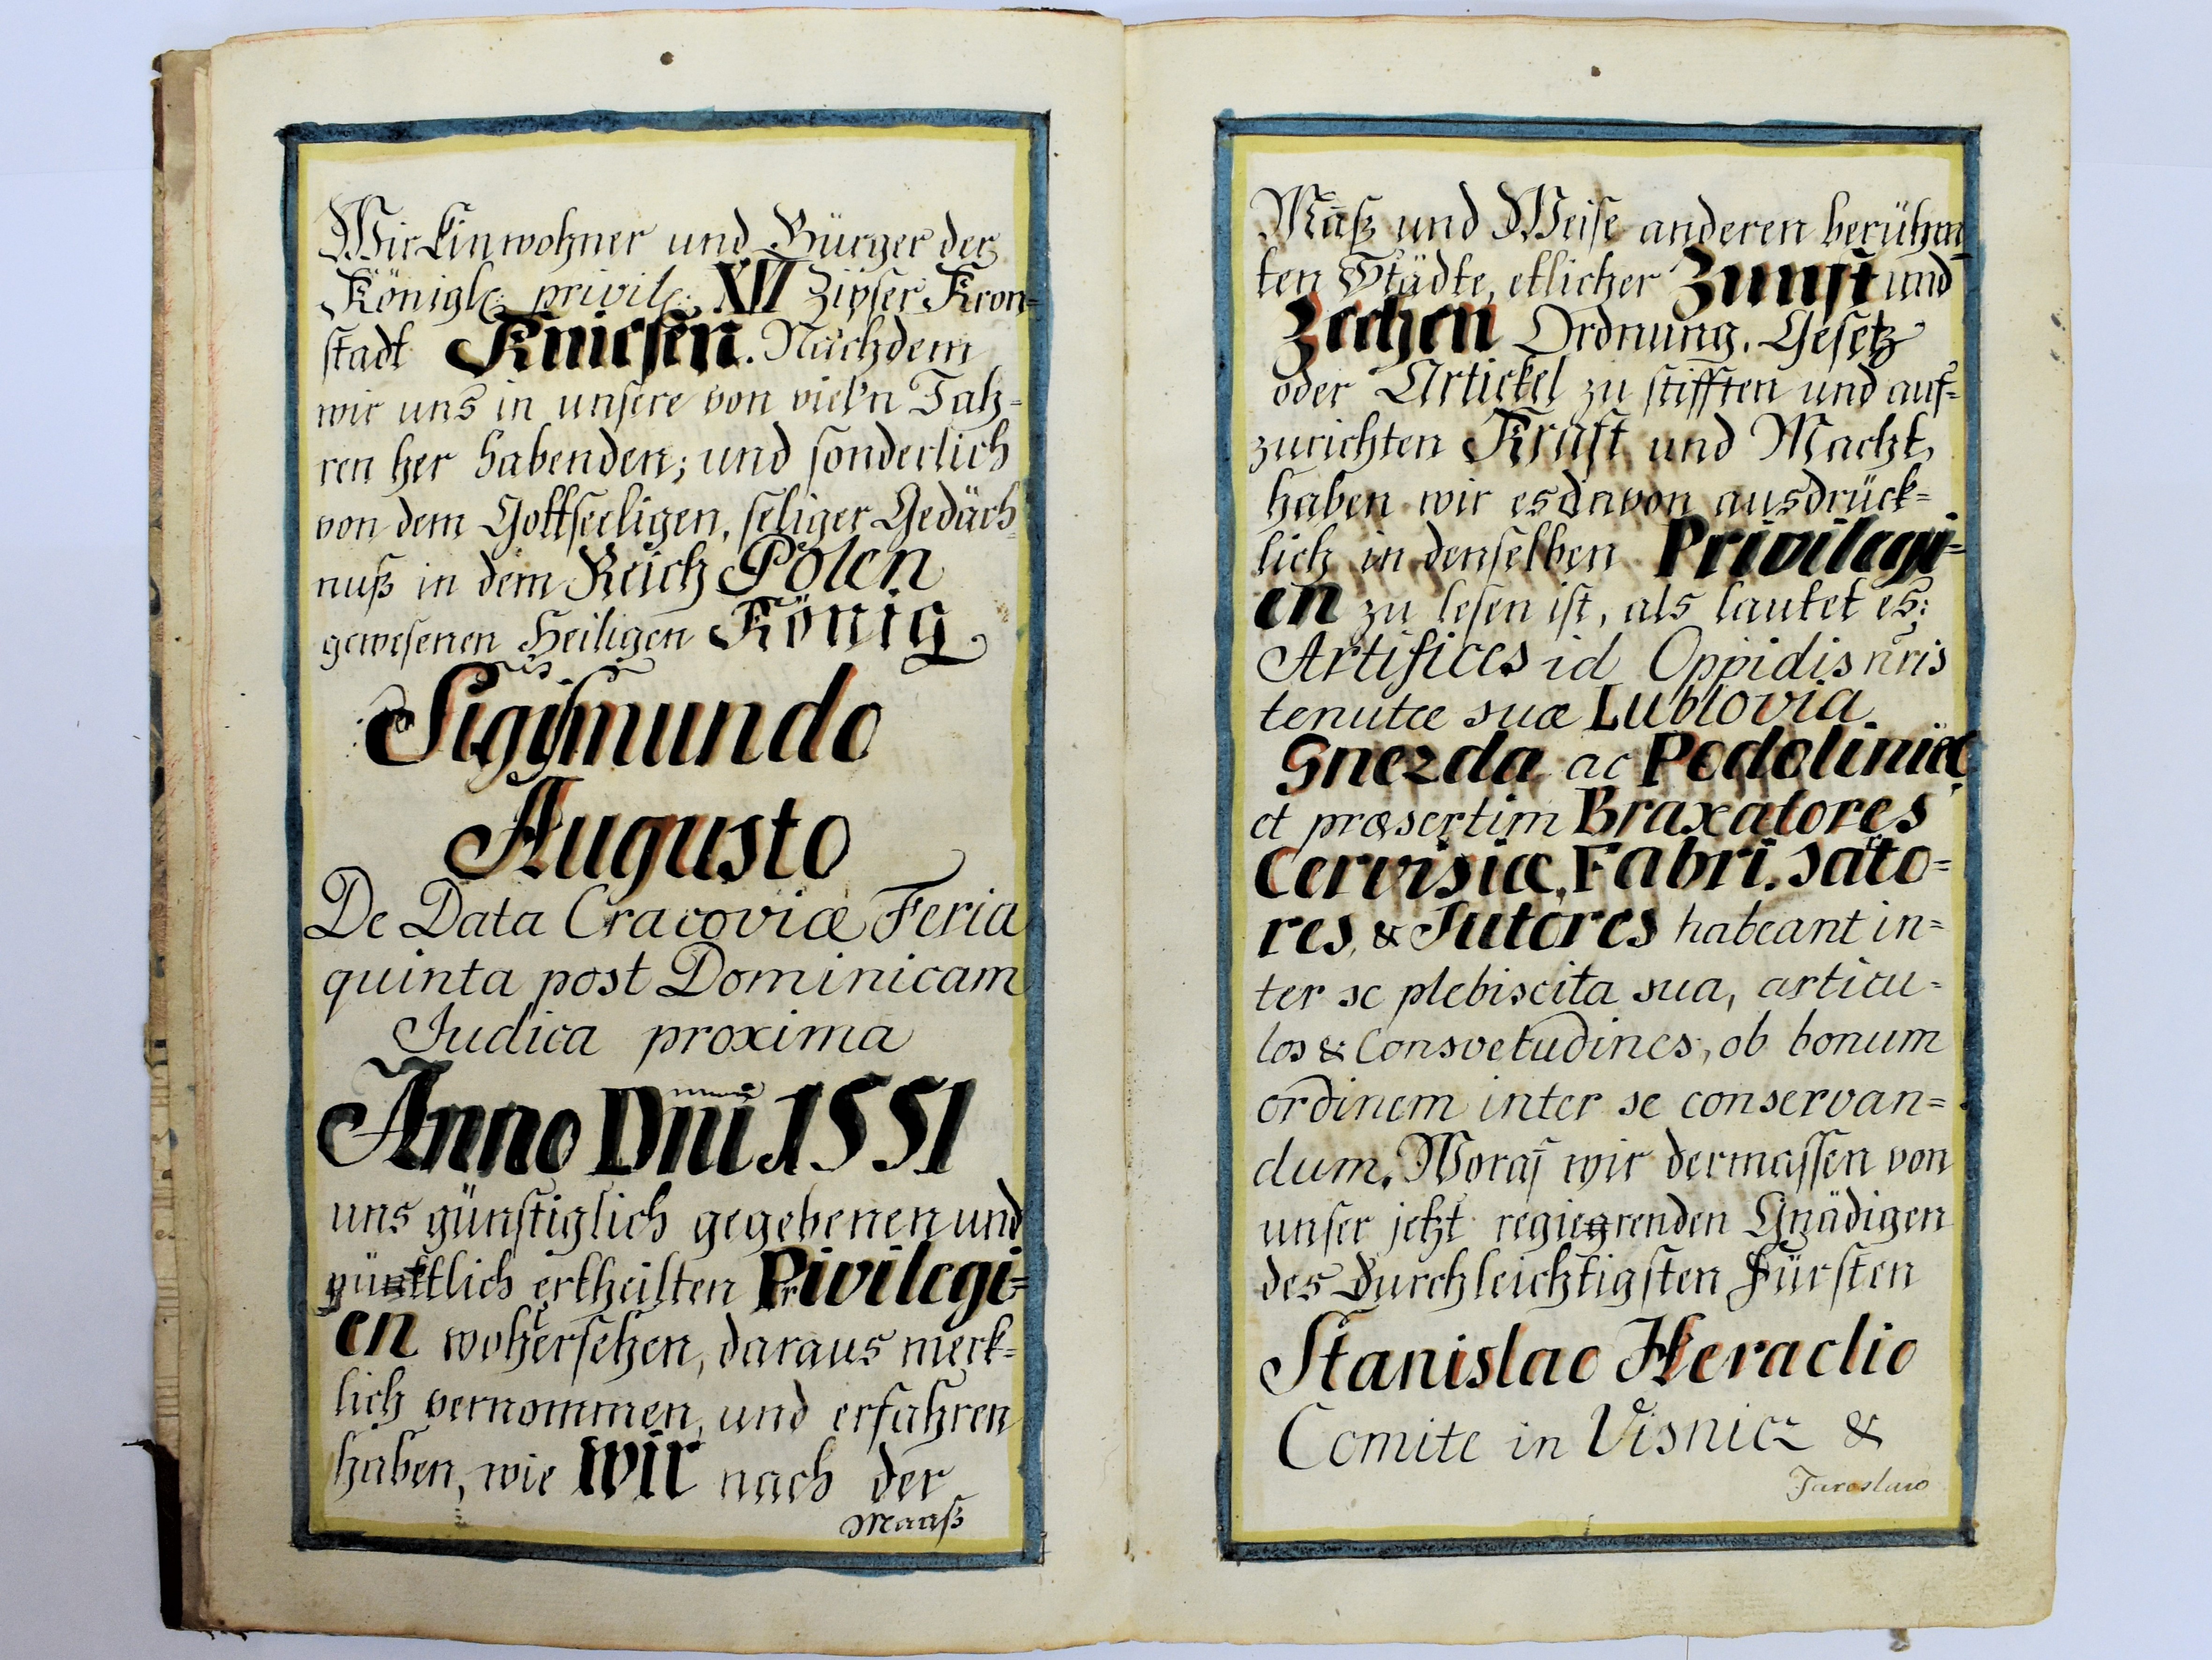 Wir Einwohner und Bürger der
Königl: privil: XVI Zipser Kron=
stadt Kniesen. Nachdem
wir uns in unsere von viel'n Jah=
ren her habenden; und sonderlich
von dem Gottseeligen, seliger Gedäch=
nuß in dem Reich Polen
gewesenen Heiligen König
Sigismundo
Augusto
De Data Cracoviæ Feria
quinta post Dominicam
Judica proxima
Anno Dni 1551
uns günstiglich gegebenen und
pünktlich ertheilten Privilegi=
en wohersehen, daraus merk=
lich vernommen, und erfahren
haben, wie wir nach der
Maaß
Maß und Weise anderen berühm
ten Städte, etlicher Zunft und
Zechen Ordnung, Gesetz
oder Artickel zu stifften und auf=
zurichten Kraft und Macht
haben wir es davon ausdrück=
lich in denselben Privilegi=
en zu lesen ist, als lautet es:
Artifices id Oppidis nris
tenutæ suæ Lublovia
Gnezda ac Podoliniec
et præsertim Braxatores
Cervisiæ, Fabri, Sato=
res, & Sutores habeant in=
ter se plebiscita sua, articu=
los & Consvetudines, ob bonum
ordinem inter se conservan=
dum. Woraȷ̄ wir dermassen von
unser jetzt regiegrenden Gnädigen
des Durchleichtigsten Fürsten
Stanislao Heraclio
Comite in Visnicz &
Jaroslaw